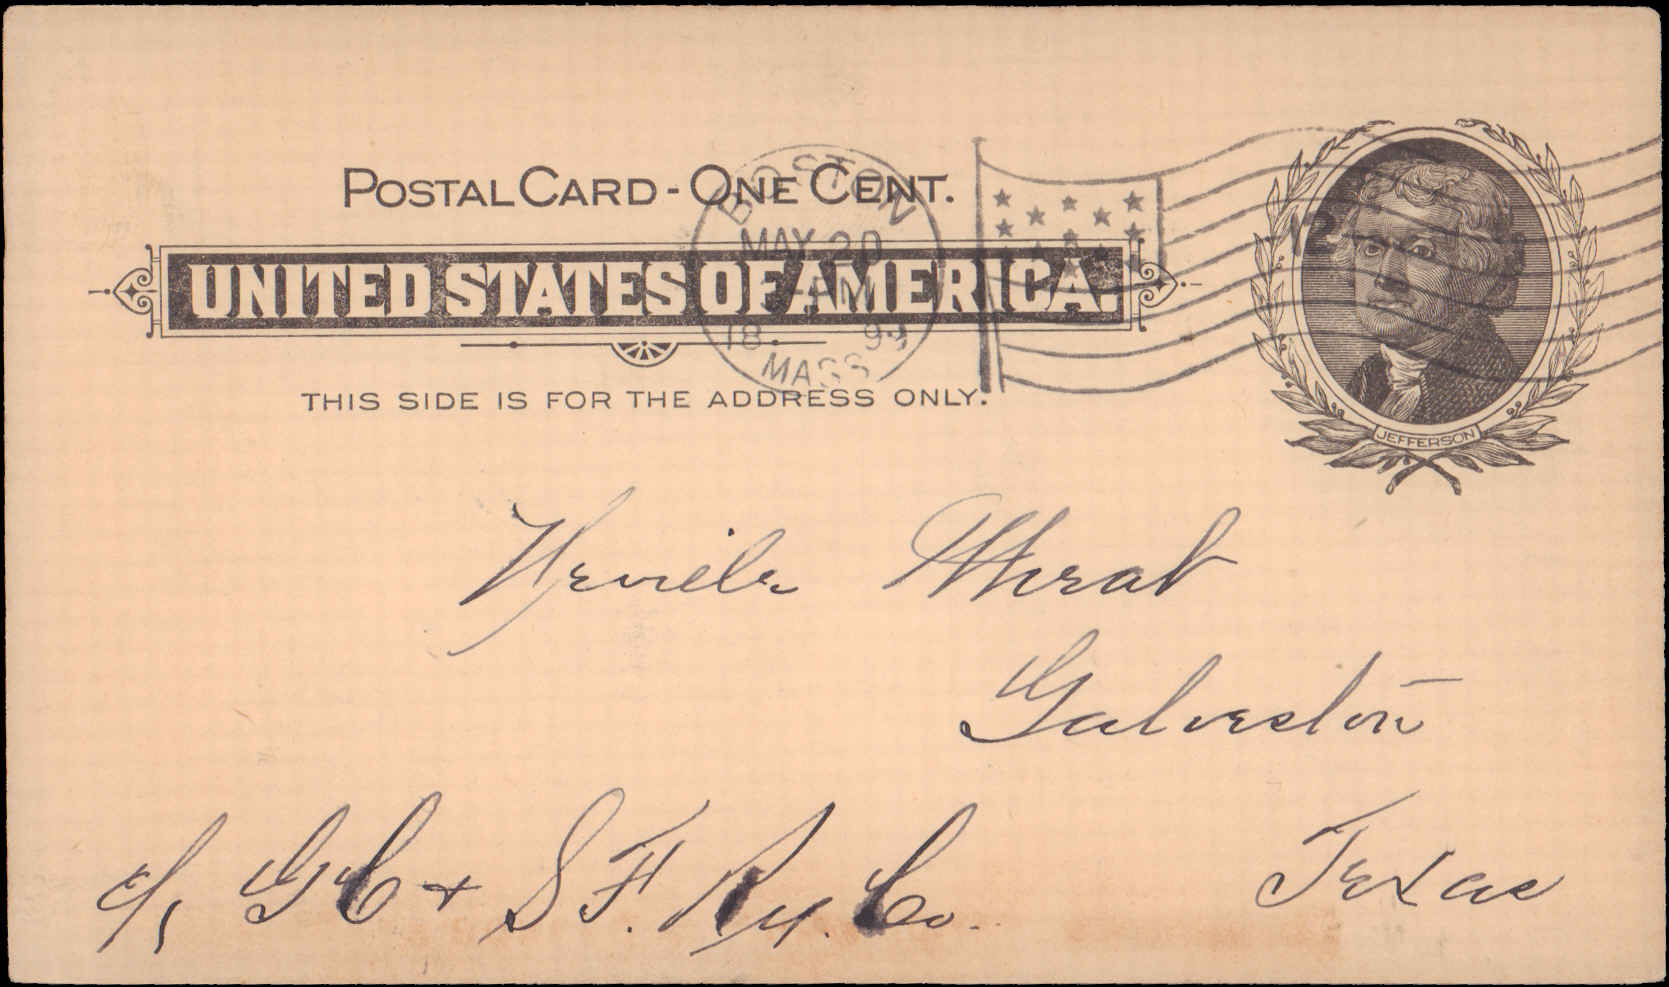 POSTAL CARD - ONE CENT.
UNITED STATES OF AMERICA.
THIS SIDE IS FOR THE ADDRESS ONLY.
BOSTON
MAY 20
18 99
MASS
12
JEFFERSON
Galveston
Texas
c/, G C + S F. Ry. Co.